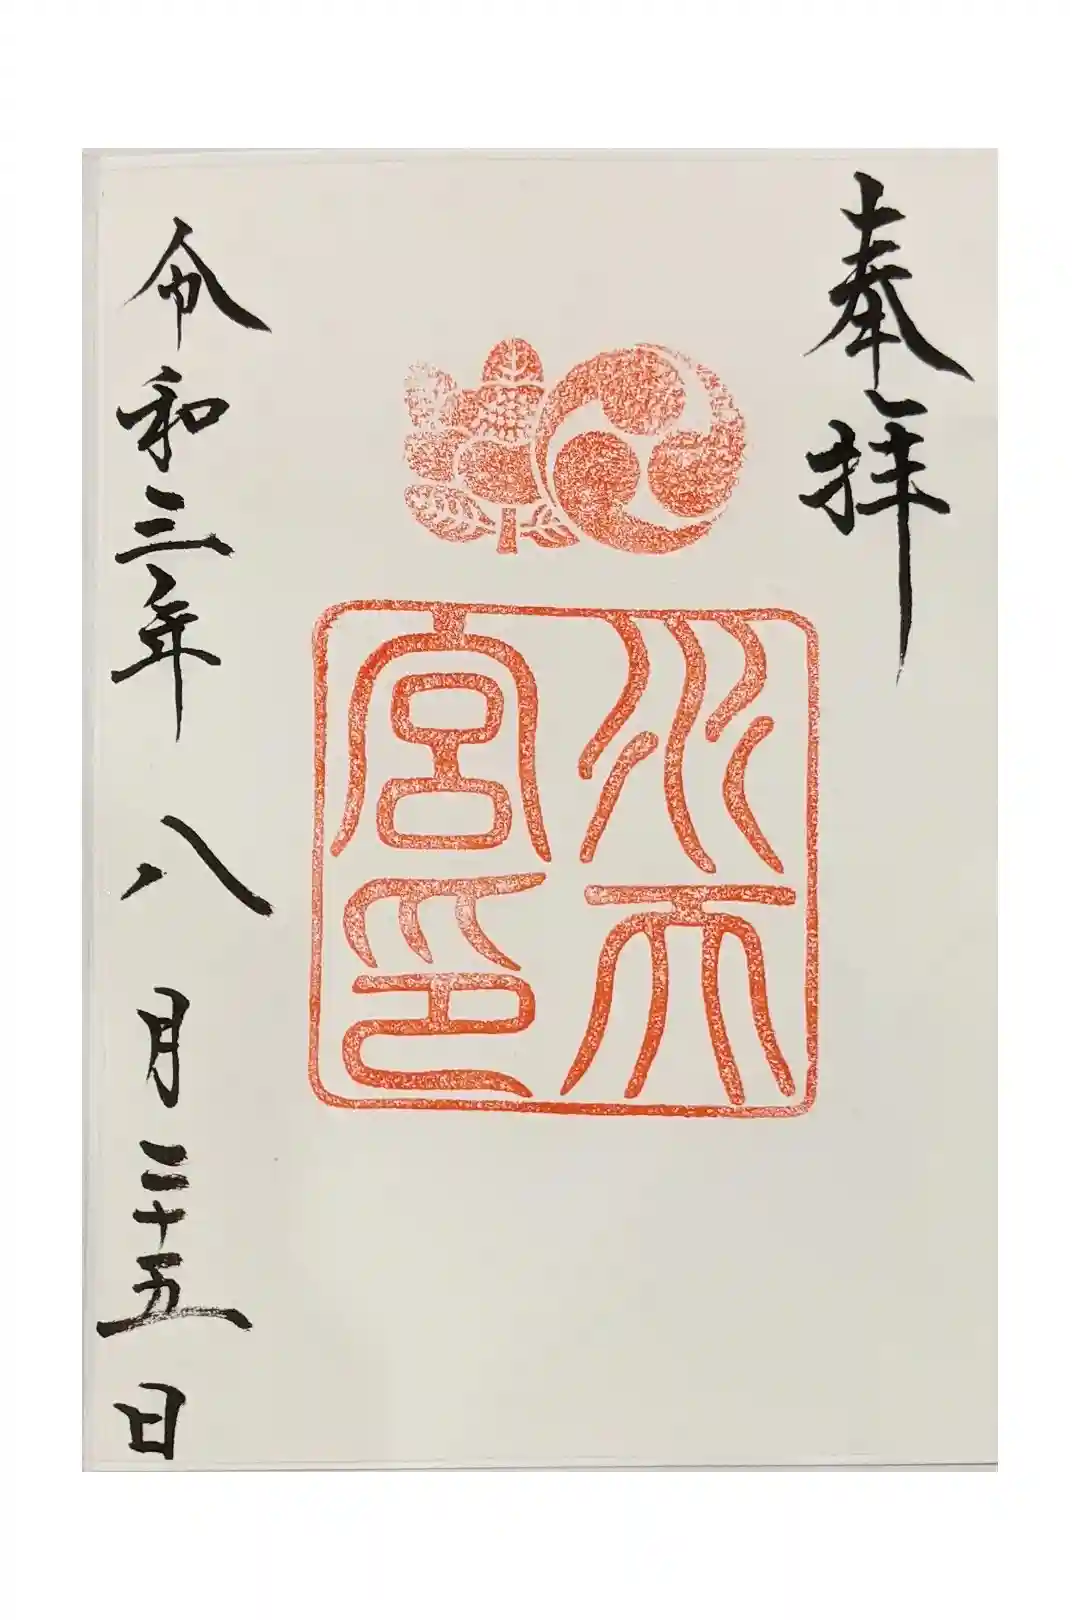 奉拝
水天
宮印
令和三年八月二十五日